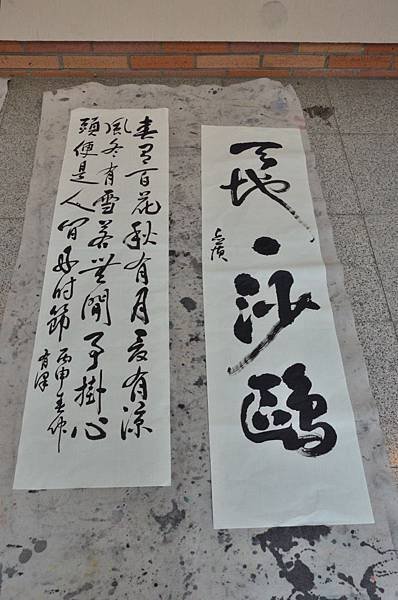 天地一沙鷗
春有百花秋有月夏有涼
風冬有雪若無閒事掛心
頭便是人間好時節 丙申